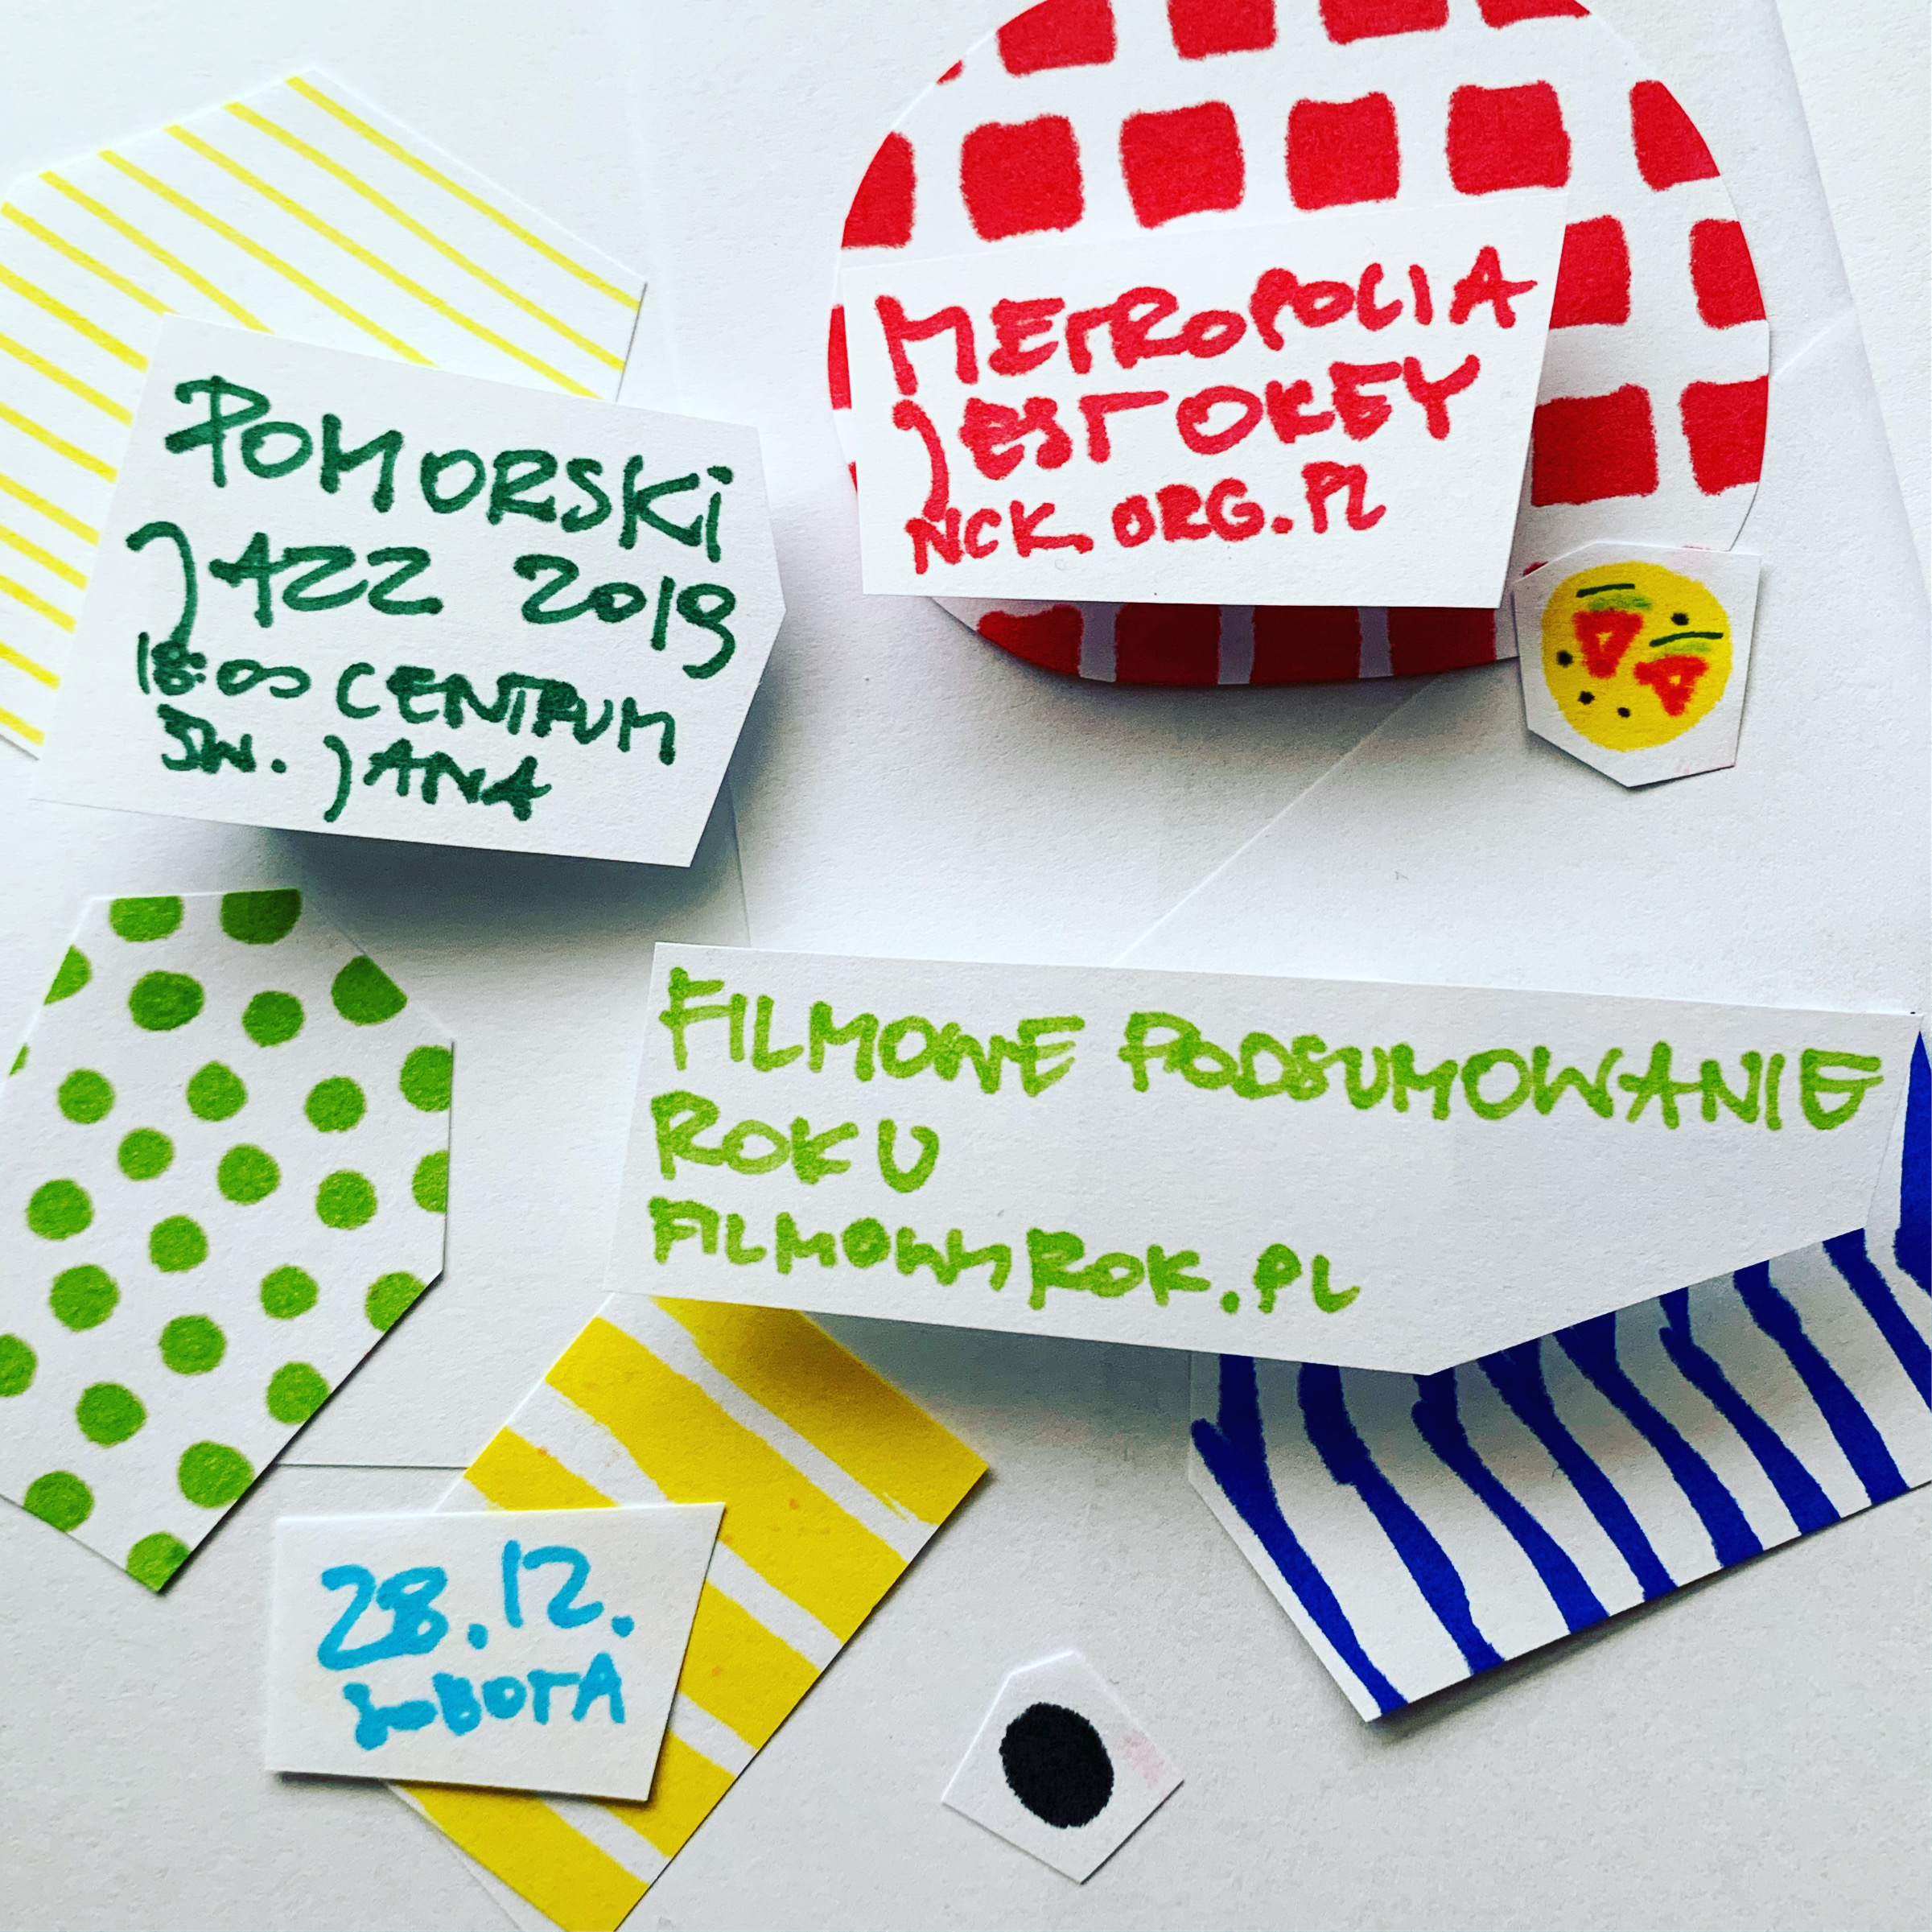 POMORSKI
JAZZ 2019
18:00 CENTRUM
ŚW. JANA
METROPOLIA
JEST OKEY
NCK.ORG.PL
FILMOWE PODSUMOWANIE
ROKU
FILMOWYROK.PL
28.12.
SOBOTA